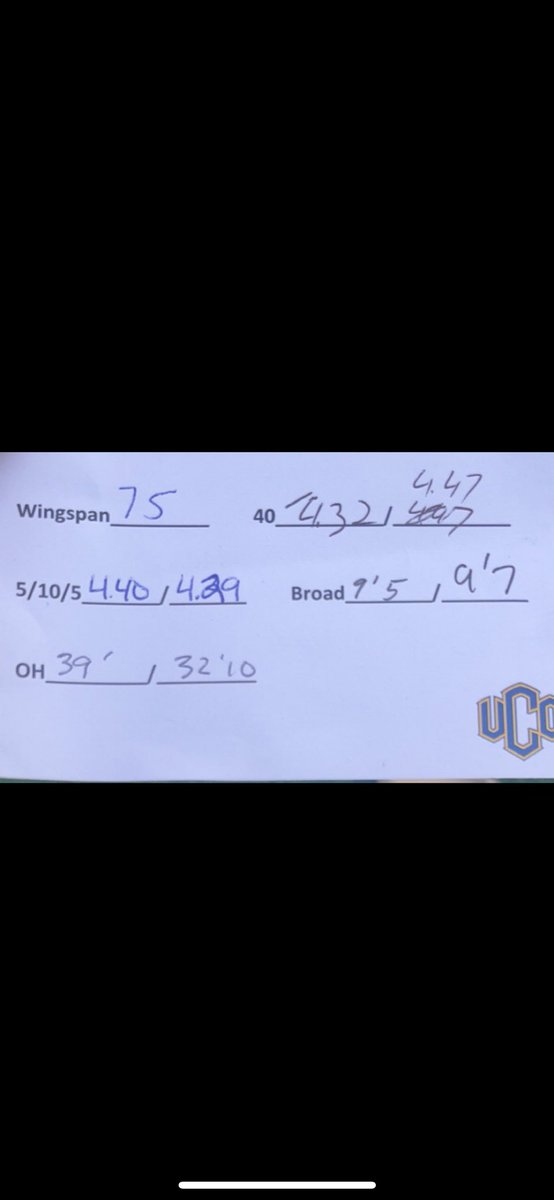 4.47
Wingspan 75 40 4.32 / 4.97
5/10/5 4.40 / 4.29 Broad 9'5 , 9'7
OH 39' / 32'10
UCO